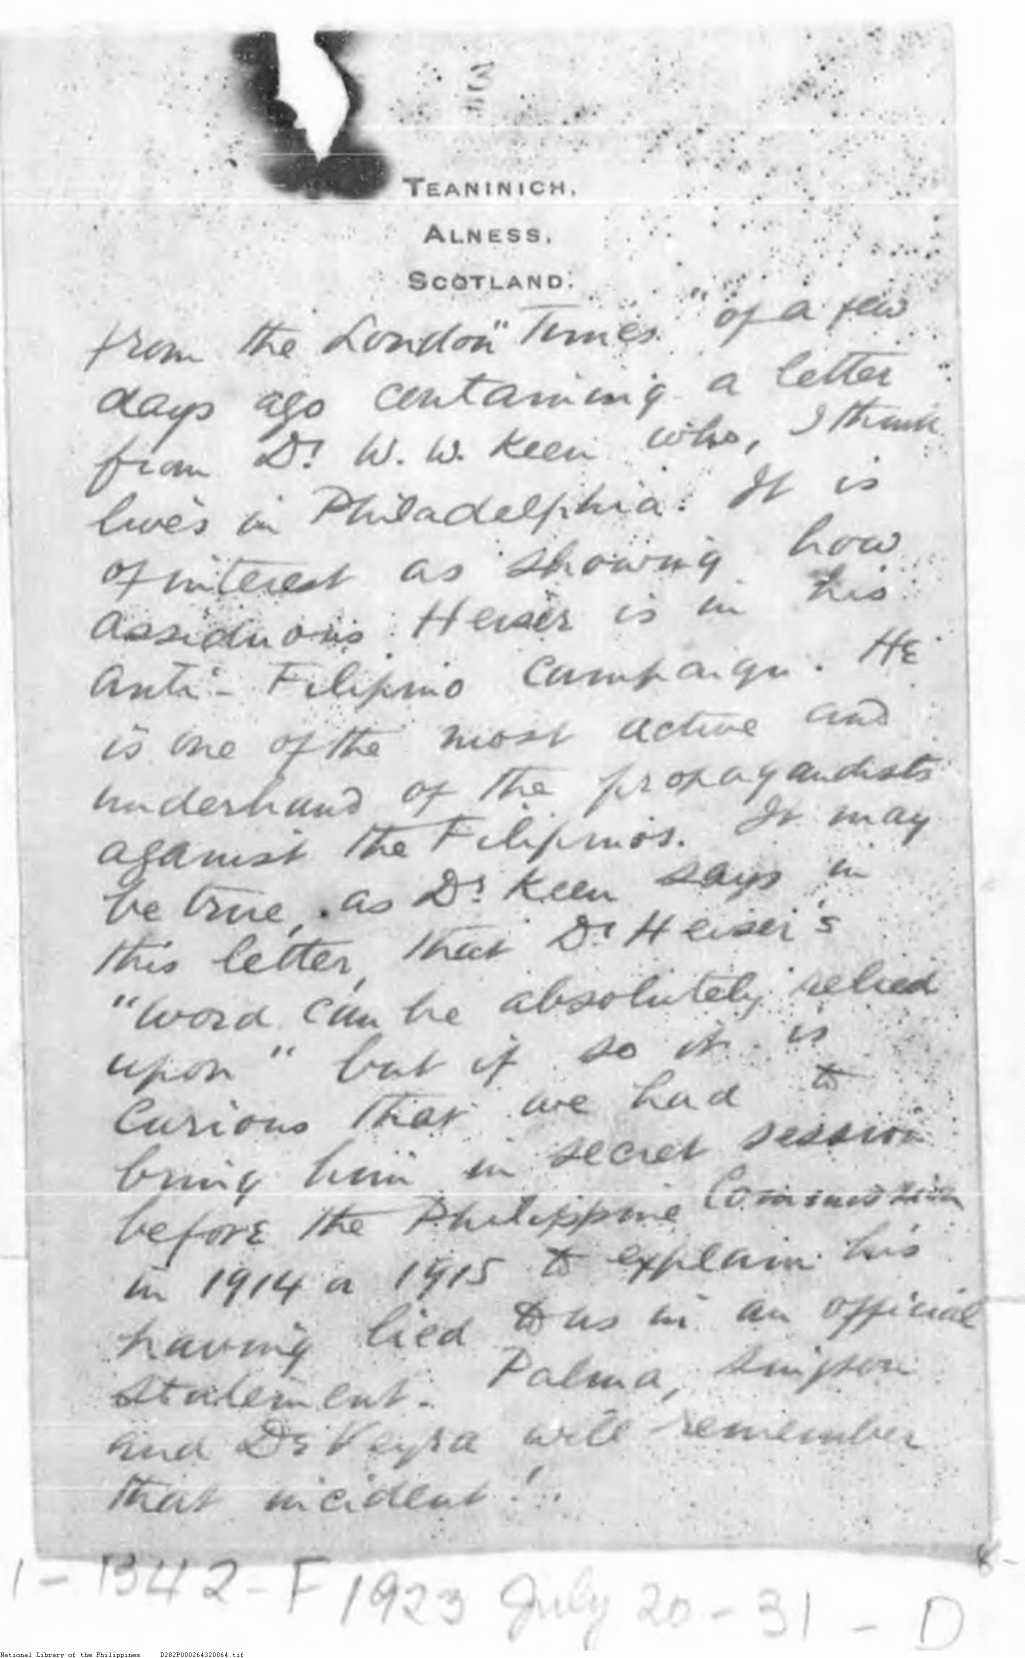 3
TEANINICH,
ALNESS,
SCOTLAND.
from the London "Times" of a few
days ago containing a letter
from Dr. W. W. Keen who, I think
lives in Philadelphia. It is
of interest as showing how
assiduous Heiser is in his
anti-Filipino campaign. He
is one of the most active and
underhand of the propagandists
against the Filipinos. It may
be true, as Dr Keen says in
this letter, that Dr Heiser's
"word can be absolutely relied
upon" but if so it is
curious that we had to
bring him in secret session
before the Philippine Commission
in 1914 or 1915 to explain his
having lied to us in an official
statement. Palma, Singson
and De Veyra will remember
that incident!
1-B42-F 1923 July 20-31-D
National Library of the Philippines D282P000264320064.tif